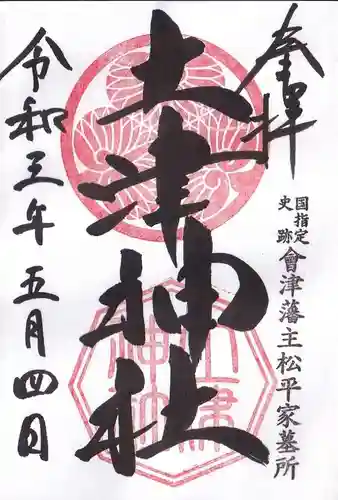 奉拝
国指定
史跡
會津藩主松平家墓所
土津神社
令和三年五月四日
土津
神社